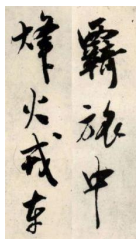 羈旅中
烽火戎車